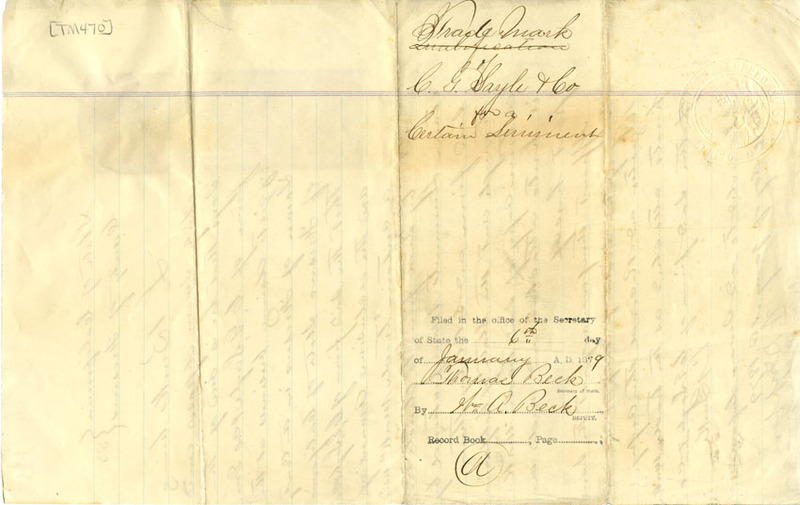 [TM470]
Trade Mark
Qualification
C. G. Sayle & Co
for a
Certain Liniment
Filed in the office of the Secretary
of State the 6th day
of January A. D. 1879
Thomas Beck
Secretary of State.
By Wm A. Beck
DEPUTY.
Record Book , Page ,
A